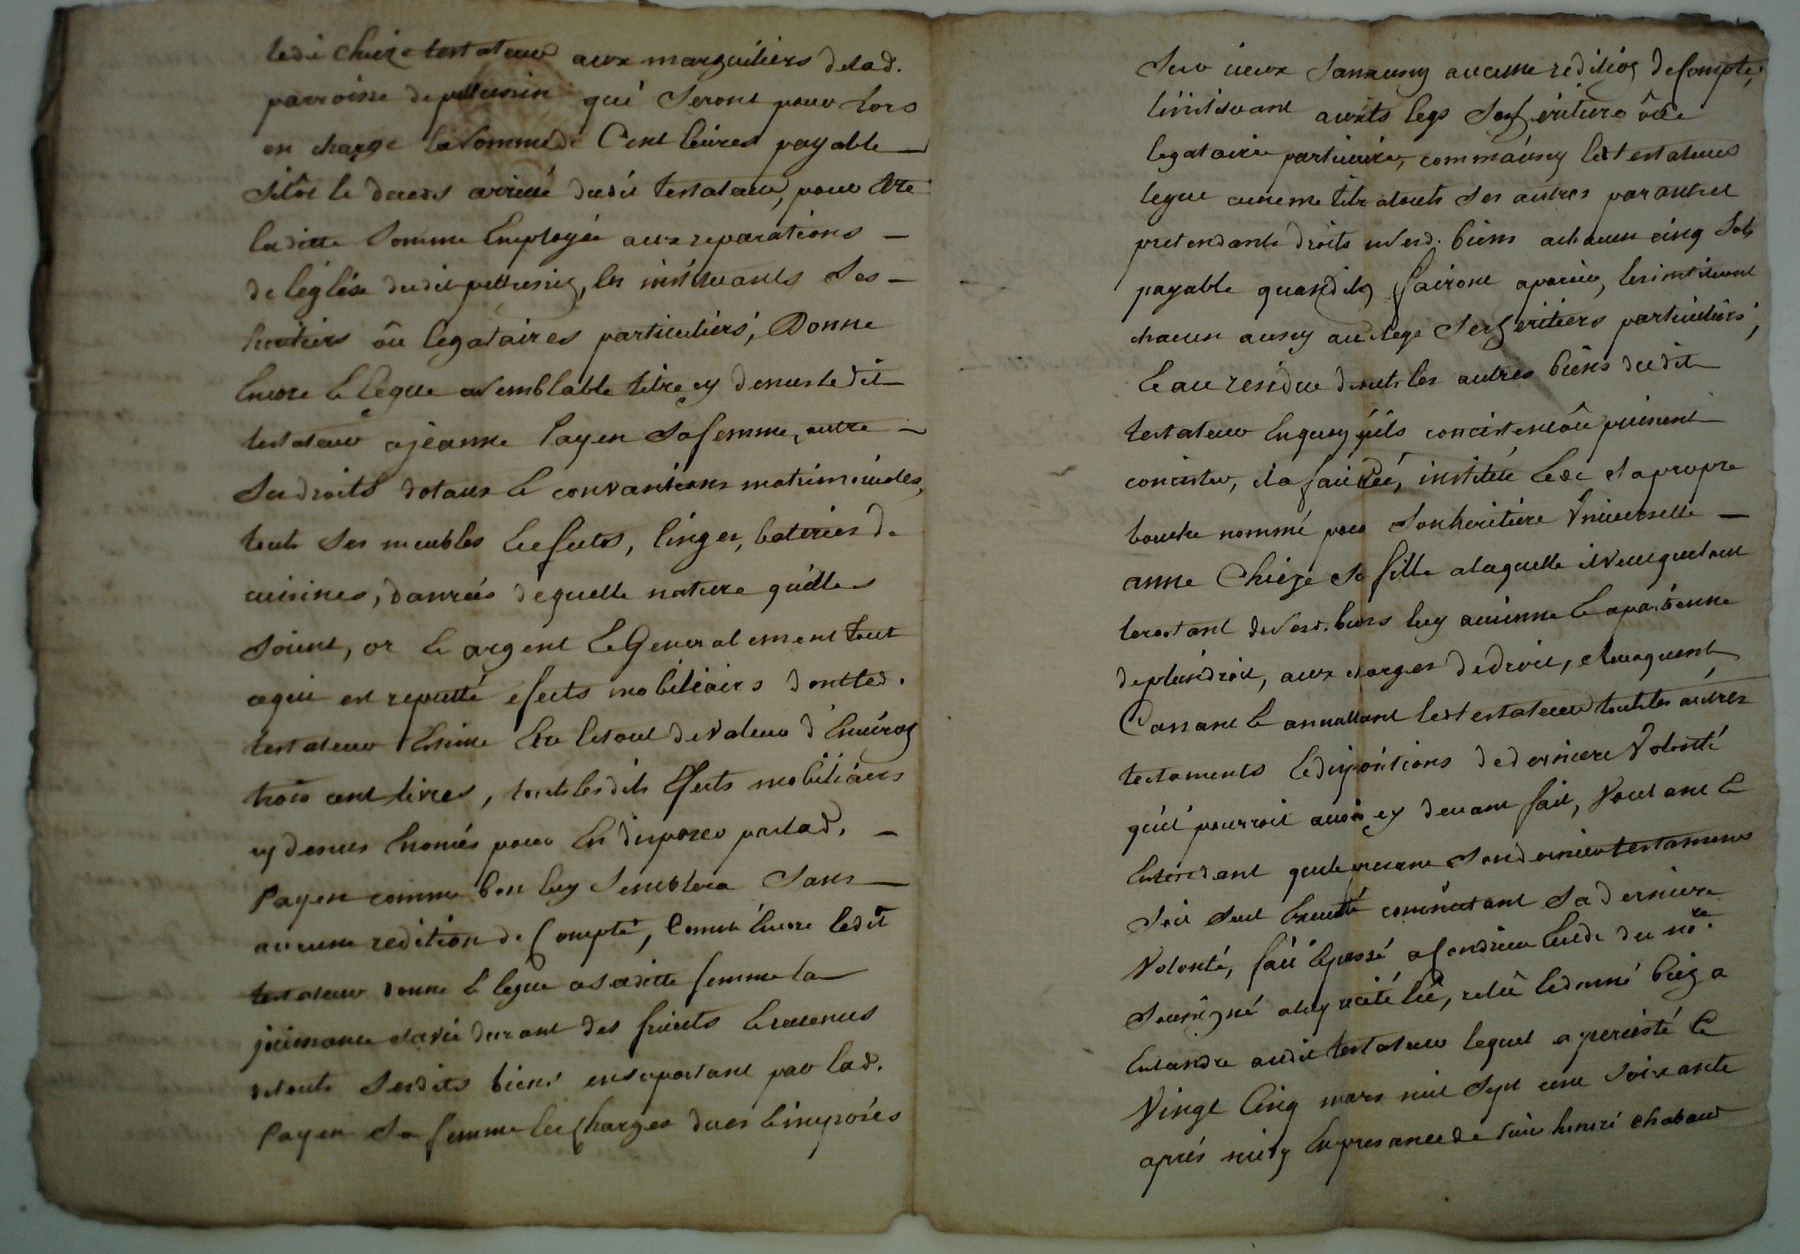 ledit Chieze testateur aux marguiliers delad.
parroisse de pellusin qui seront pour lors
en charge la somme de Cent livres payable
sitôt le deceds arrivé dudit testateur, pour être
laditte somme Employée aux reparations
de léglise dudit pellusin, les instituants ses
heritiers oû legataires particuliers, Donne
Encore & legue a semblable titre cy dessus ledit
testateur a jeanne payen sa femme, outre
ses droits dotaux & convantions matrimonialles,
touts ses meubles & efects, linges, bateries de
cuisines, danrées de quelle nature quelles
soient, or & argent & Generalement tout
ce qui est reputté efects mobiliairs dont led.
testateur Estime Etre le tout de valeur d'Environ
trois cent livres, touts lesdits Efects mobiliairs
cy dessus Enoncés pour En disposer par lad.
payen comme bon luy semblera sans
aucune redition de Compte, Comme Encore ledit
testateur donne & legue a saditte femme la
jouissance sa vie durant des fruits & revenus
de touts sesdits biens en suportant par lad.
payen sa femme les Charges dues & imposées
sur iceux sans aussy aucune redition de Compte,
L'instituant auxdits legs son heritiere oûe
legataire particuiere, comme aussy led testateur
legue au meme titre a touts ses autres parants et
pretendants droits a sesd. biens a chacun cinq sols
payable quand ils fairont aparoir, les instituant
chacun aussy audit legs ses heritiers particuliers,
& au residue de touts les autres biens dudit
testateur En quoy quils concistent oû puissent
concister, il a fait, créé, institué & de sa propre
bouche nommé pour son heritiere Vniverselle
anne Chieze sa fille a laquelle il veut que tout
le restant de sesd. biens luy avienne & apartienne
de plein droit, aux charges de droit, revoquant
Cassant & annullant led testateur touts les autres
testaments & dispositions de derniere Volonté
qu'il pourroit avoir cy devant fait, Voulant &
Entendant que le presant son dernier testament
soit seul Executté comme étant sa derniere
Volonté, fait & passé a fondrieu Etude du nore.
soussigné a luy recité lû, relû & donné bien a
Entandre audit testateur lequel a percisté le
Vingt Cinq mars mil sept cent soixante
aprés midy En presance de sieur henri chabour